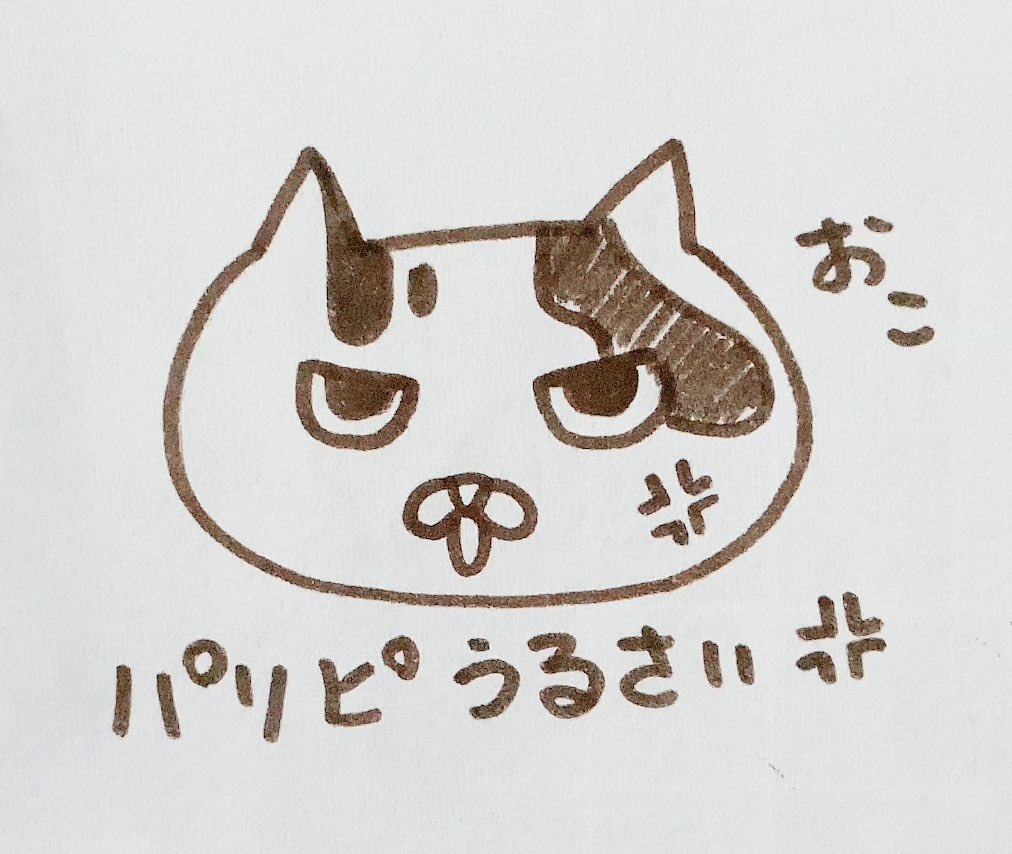 おこ
パリピうるさい💢